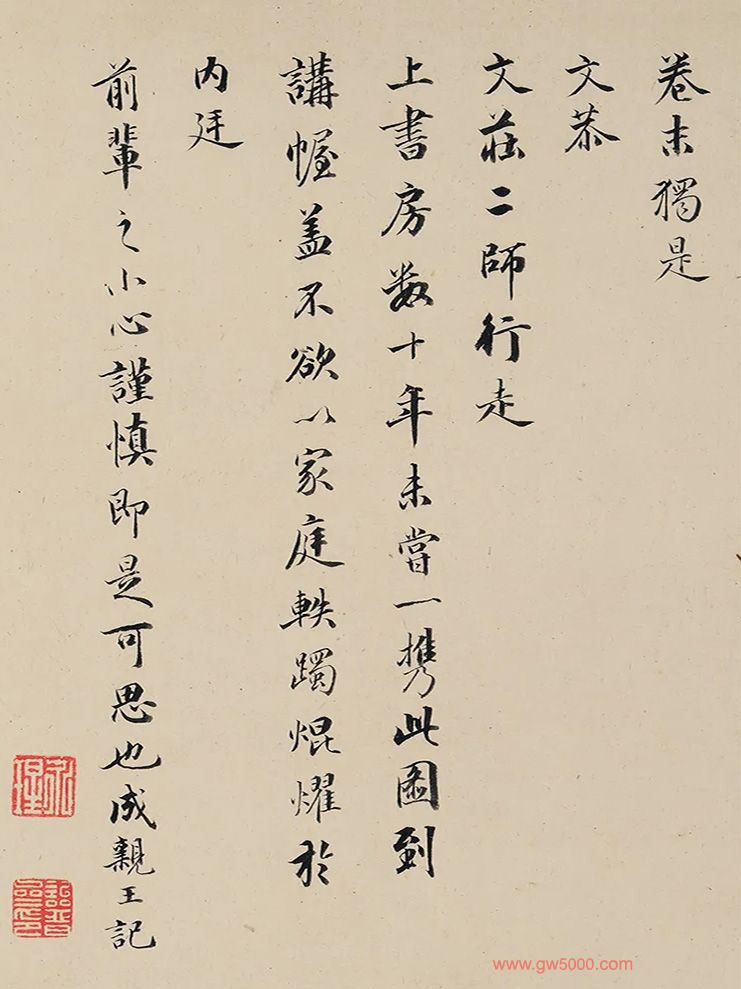 卷末獨是
文恭
文莊二師行走
上書房数十年未嘗一携此圖到
講幄盖不欲以家庭軼躅焜燿於
内廷
前輩之小心謹慎即是可思也成親王記
永瑆
詒晉齋印
www.gw5000.com